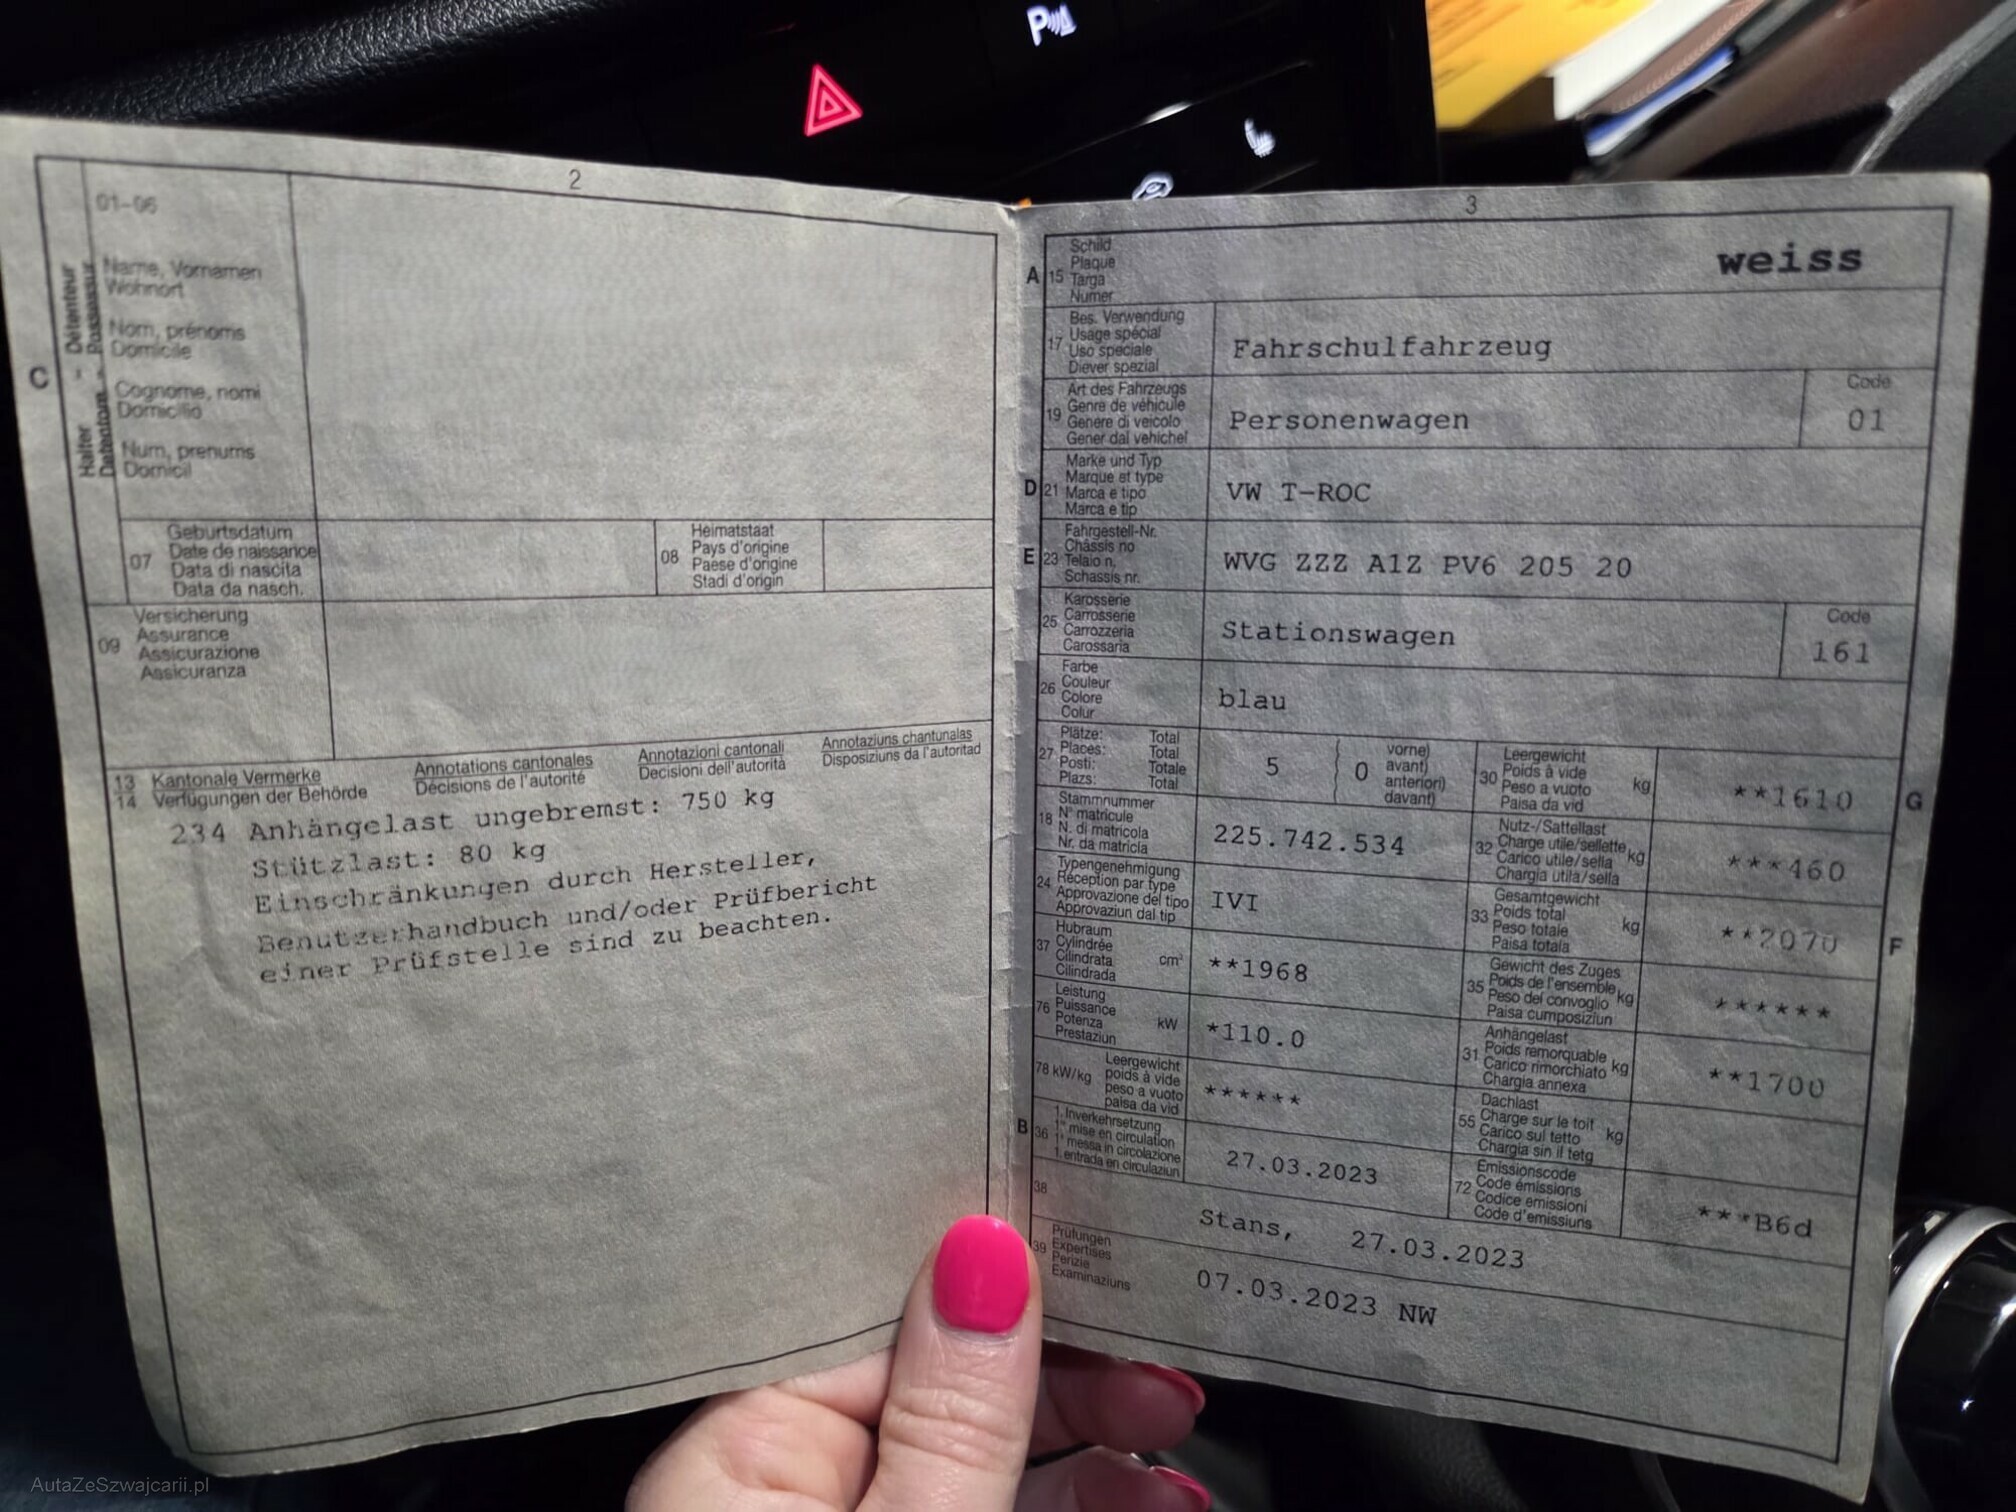 2
01-06
Halter - Détenteur
Detentom. - Possessur
C
Name, Vornamen
Wohnort
Nom, prénoms
Domicile
Cognome, nomi
Domicilio
Num, prenums
Domicil
07
Geburtsdatum
Date de naissance
Data di nascita
Data da nasch.
08
Heimatstaat
Pays d'origine
Paese d'origine
Stadi d'origin
09
Versicherung
Assurance
Assicurazione
Assicuranza
13 Kantonale Vermerke Annotations cantonales Annotazioni cantonali Annotaziuns chantunalas
14 Verfügungen der Behörde Décisions de l'autorité Decisioni dell'autorità Disposiziuns da l'autoritad
234 Anhängelast ungebremst: 750 kg
Stützlast: 80 kg
Einschränkungen durch Hersteller,
Benutzerhandbuch und/oder Prüfbericht
einer Prüfstelle sind zu beachten.
3
A 15
Schild
Plaque
Targa
Numer
weiss
17
Bes. Verwendung
Usage spécial
Uso speciale
Diever spezial
Fahrschulfahrzeug
19
Art des Fahrzeugs
Genre de véhicule
Genere di veicolo
Gener dal vehichel
Personenwagen
Code
01
D 21
Marke und Typ
Marque et type
Marca e tipo
Marca e tip
VW T-ROC
E 23
Fahrgestell-Nr.
Châssis no
Telaio n.
Schassis nr.
WVG ZZZ A1Z PV6 205 20
25
Karosserie
Carrosserie
Carrozzeria
Carossaria
Stationswagen
Code
161
26
Farbe
Couleur
Colore
Colur
blau
27
Plätze: Total
Places: Total
Posti: Totale
Plazs: Total
5
0
vorne)
avant)
anteriori)
davant)
30
Leergewicht
Poids à vide
Peso a vuoto
Paisa da vid
kg
**1610
G
18
Stammnummer
N° matricule
N. di matricola
Nr. da matricla
225.742.534
32
Nutz-/Sattellast
Charge utile/sellette
Carico utile/sella
Chargia utila/sella
kg
***460
24
Typengenehmigung
Réception par type
Approvazione del tipo
Approvaziun dal tip
IVI
33
Gesamtgewicht
Poids total
Peso totale
Paisa totala
kg
**2070
F
37
Hubraum
Cylindrée
Cilindrata
Cilindrada
cm³
**1968
35
Gewicht des Zuges
Poids de l'ensemble
Peso del convoglio
Paisa cumposiziun
kg
******
76
Leistung
Puissance
Potenza
Prestaziun
kW
*110.0
31
Anhängelast
Poids remorquable
Carico rimorchiato
Chargia annexa
kg
**1700
78 kW/kg
Leergewicht
poids à vide
peso a vuoto
paisa da vid
******
55
Dachlast
Charge sur le toit
Carico sul tetto
Chargia sin il tetg
kg
B 36
1. Inverkehrsetzung
1re mise en circulation
1a messa in circolazione
1. entrada en circulaziun
27.03.2023
72
Emissionscode
Code émissions
Codice emissioni
Code d'emissiuns
***B6d
38
Stans, 27.03.2023
39
Prüfungen
Expertises
Perizie
Examinaziuns
07.03.2023 NW
AutaZeSzwajcarii.pl